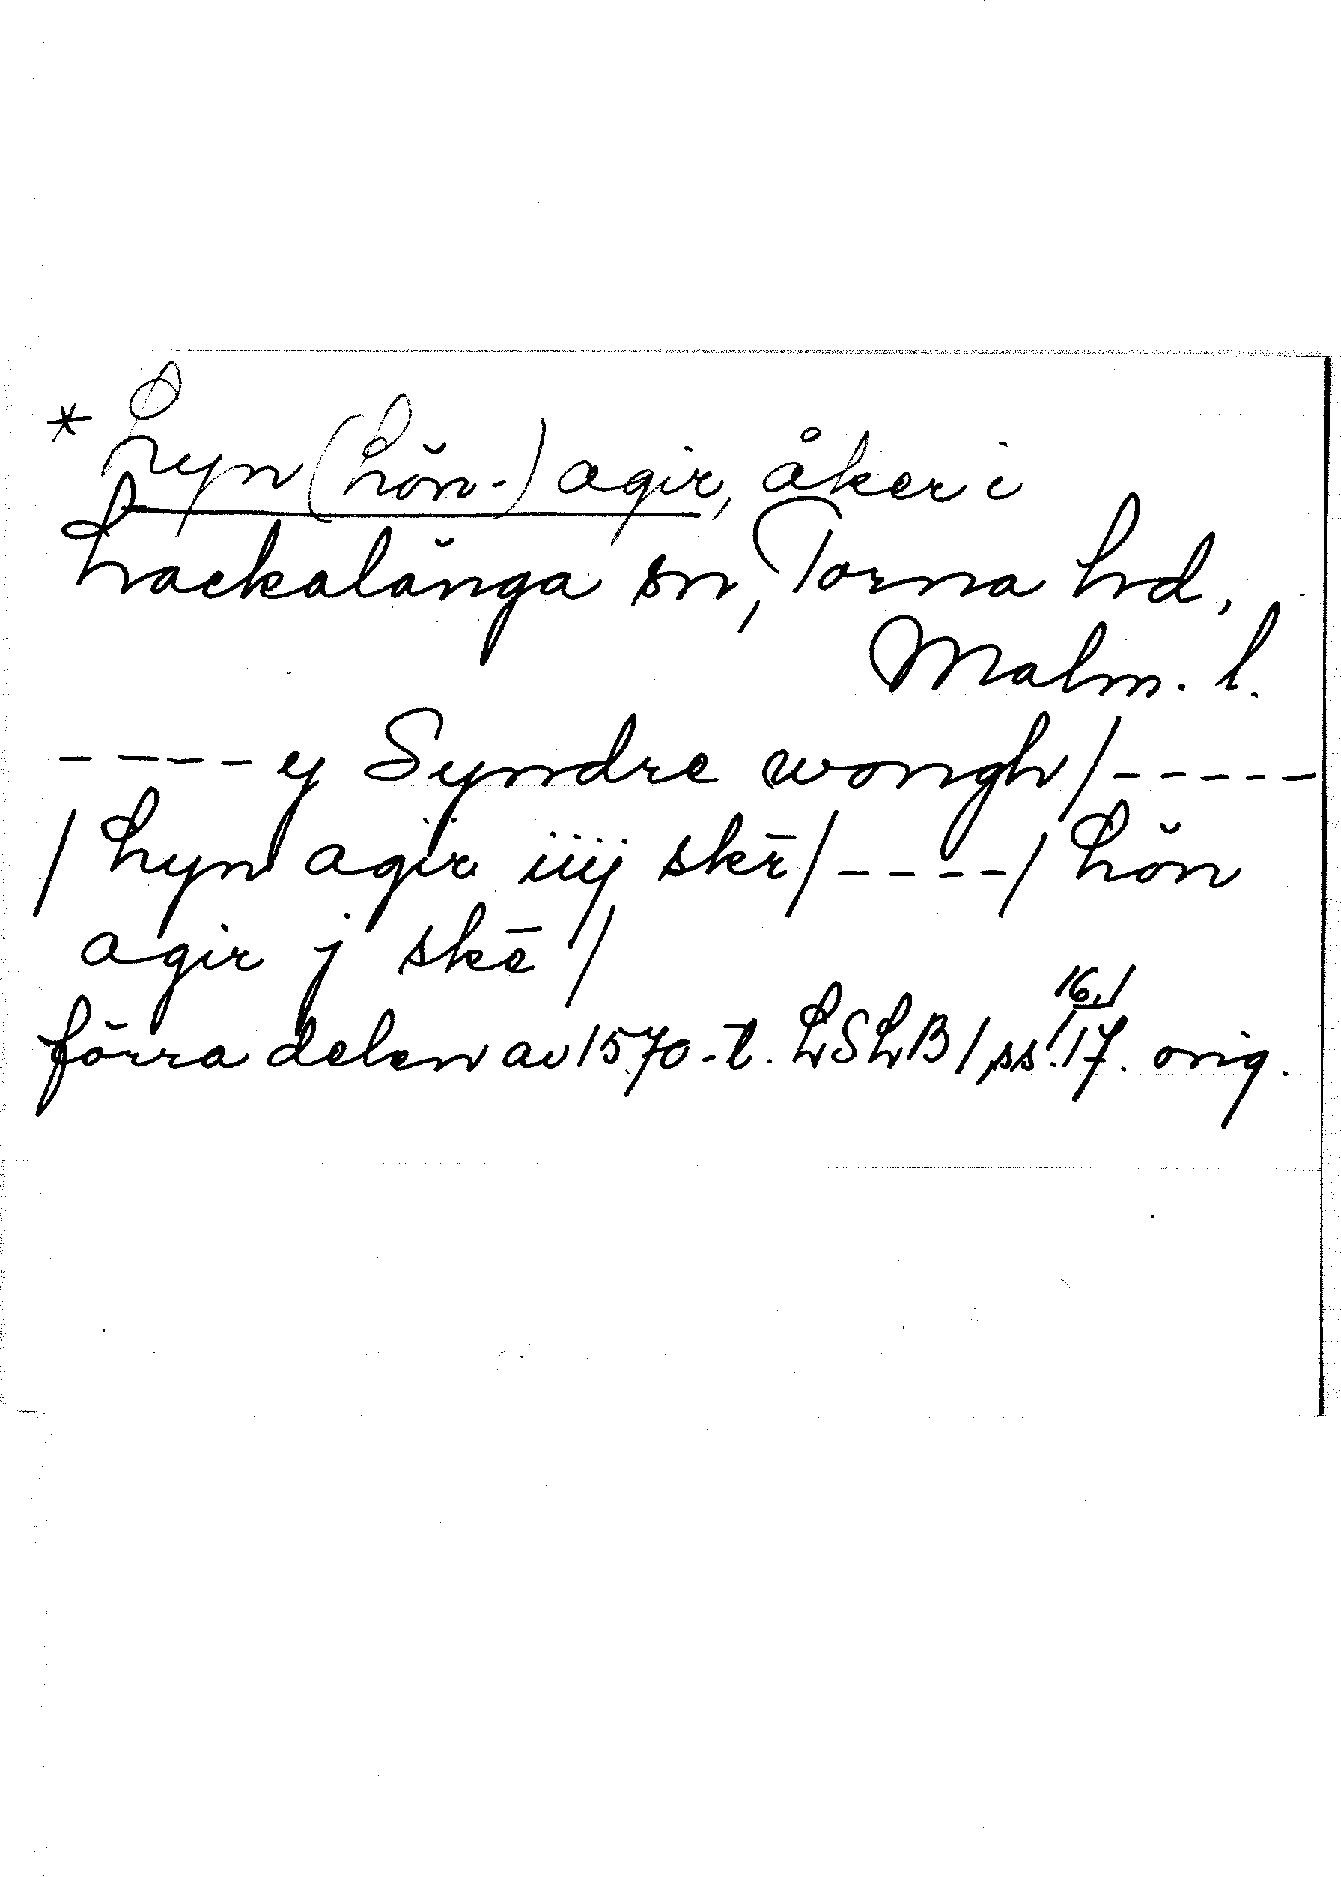 * Hyn (hön-) agir, åker i
Hackalänga sn, Torna hd,
Malm. l.
---- ej Syndre wongh/-----
/ hyn agir iiij skē/----/ hön
agir j skē /
förra delen av 1570-t. LSLB 1, ss. 16, 17. orig.